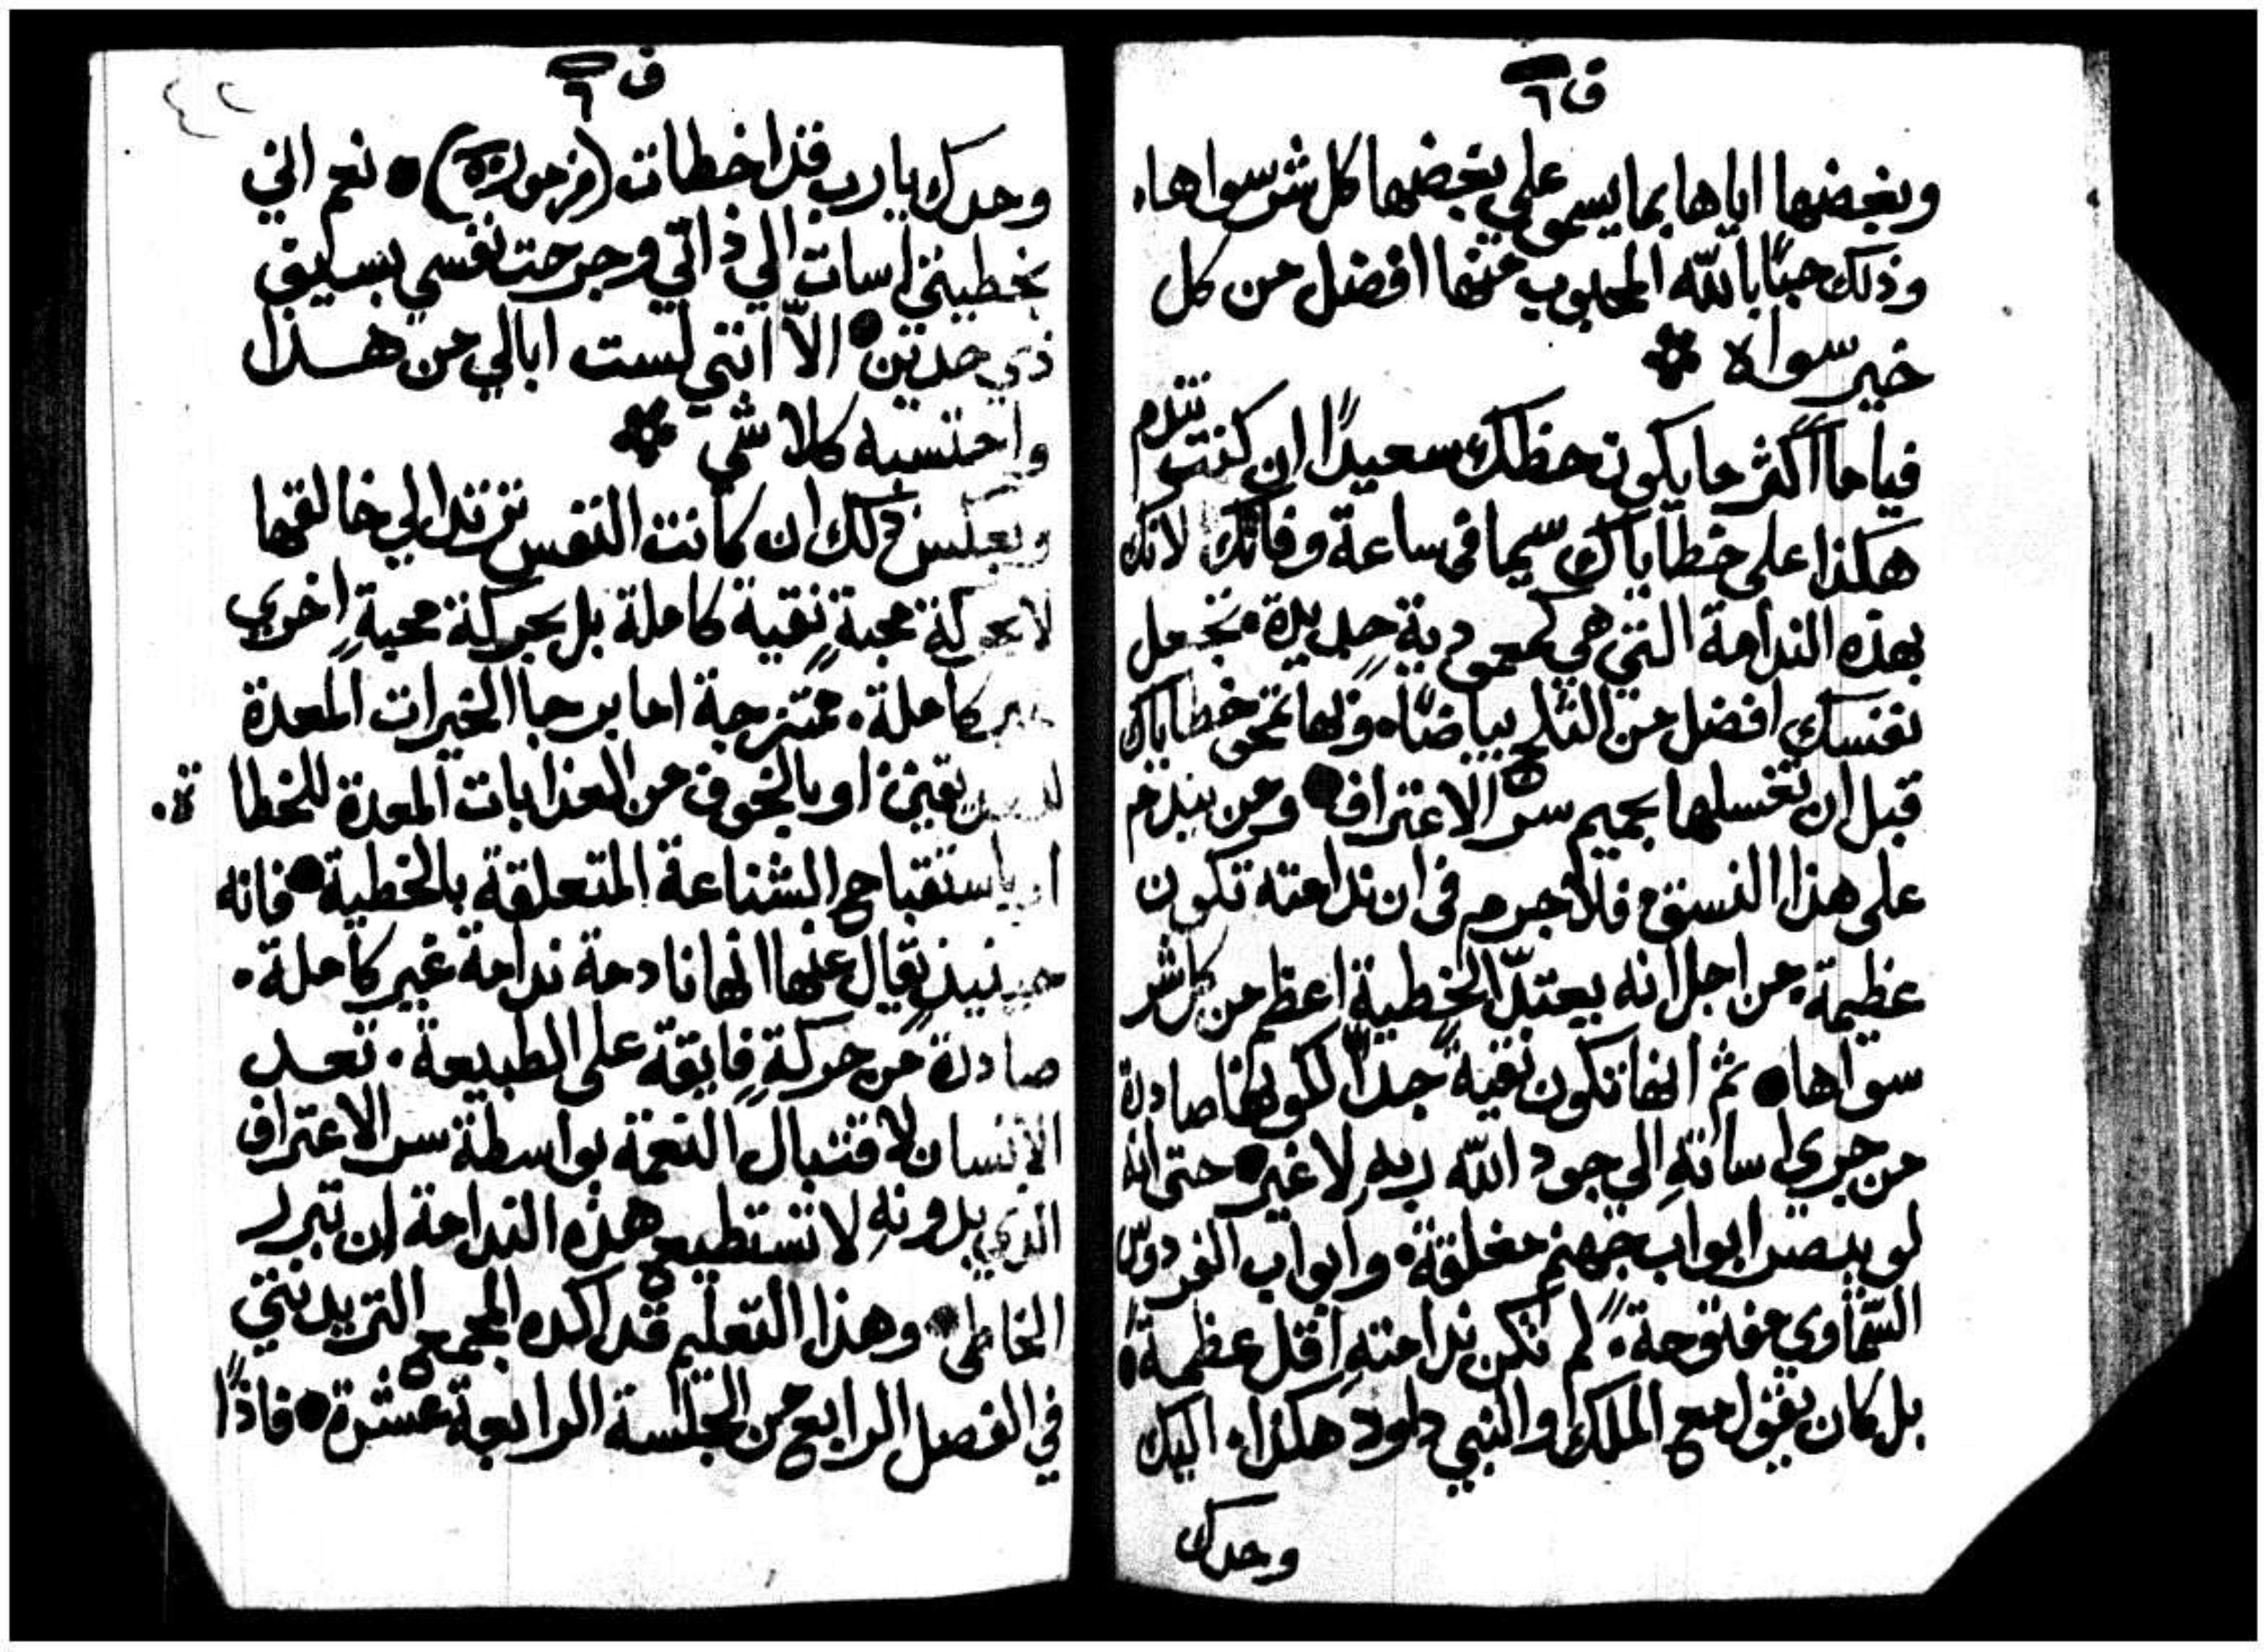 ف ٦
وبغضها اياها بما يسمو على بغضها كل شر سواها.
وذلك حبًا بالله المحبوب منها افضل من كل
خير سواه
فياما اكثر ما يكون حظك سعيدًا ان كنت تندم
هكذا على خطاياك سيما فى ساعة وفاتك. لانك
بهذه الندامة التي هي كمعمودية جديدة. تجعل
نفسك افضل من الثلج بياضًا. وبها تمحى خطاياك
قبل ان تغسلها بحميم سر الاعتراف ومن يندم
على هذا النسق فلا جرم فى ان ندامته تكون
عظيمة. من اجل انه يعتدّ الخطية اعظم من كل شر
سواها ثم انها تكون نقيةً جدًا لكونها صادرة
من جري اساتهِ الي جود الله ربهِ لا غير حتى انه
لو يبصر ابواب جهنم مغلقة وابواب الفردوس
السماوي مفتوحة. لم تكن ندامتهِ اقل عظمةً
بل كان يقول مع الملك والنبي داود هكذا. اليك
وحدك
ف ٦
وحدك يا رب قد اخطات (مزمور) نعم انني
بخطيتي اسات الي ذاتي وجرحت نفسي بسيف
ذي حدين الاّ انني لست ابالي من هذا
واحتسبه كلا شي
وبعكس ذلك ان كانت النفس ترتد الي خالقها
لا بحركة محبةٍ نقية كاملة بل بحركة محبةٍ اخري
غير كاملة. ممتزجة اما برجا الخيرات المعدة
او بالخوف من العذابات المعدة للخطا
ة.
او باستقباح الشناعة المتعلقة بالخطية فانه
حينيذٍ يقال عنها انها نادمة ندامة غير كاملة.
صادرة من حركةٍ فايقة على الطبيعة. تعد
الانسان لاقتبال النعمة بواسطة سر الاعتراف
الذي بدونهِ لا تستطيع هذه الندامة ان تبرر
الخاطى وهذا التعليم قد اكده المجمع التريدنتي
في الفصل الرابع من الجلسة الرابعة عشرة فاذًا